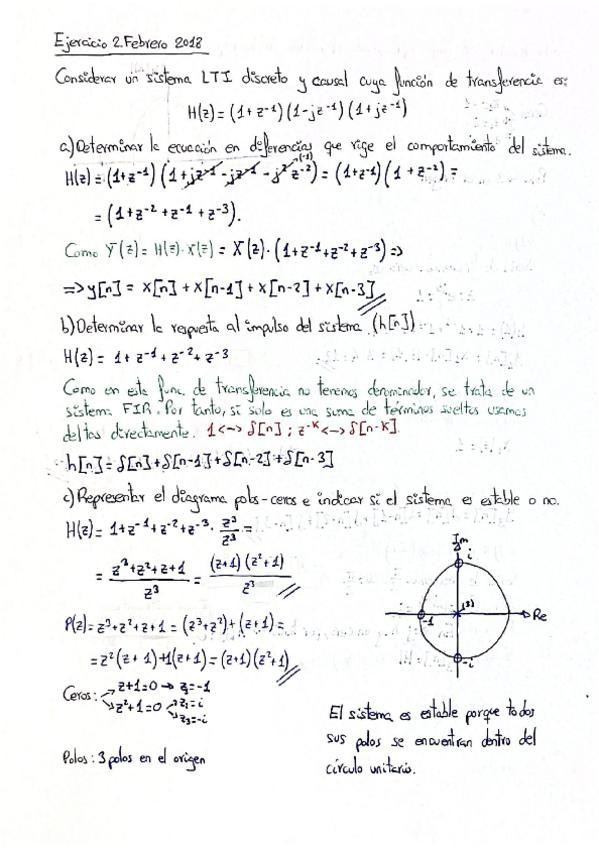 Ejercicio 2. Febrero 2018
Considerar un sistema LTI discreto y causal cuya función de transferencia es:
H(z) = (1+z⁻¹)(1-jz⁻¹)(1+jz⁻¹)
a) Determinar la ecuación en diferencias que rige el comportamiento del sistema.
H(z) = (1+z⁻¹)(1+jz⁻¹-jz⁻¹-j²z⁻²) = (1+z⁻¹)(1+z⁻²) =
(-1)
= (1+z⁻²+z⁻¹+z⁻³).
Como Y(z) = H(z)·X(z) = X(z)·(1+z⁻¹+z⁻²+z⁻³) =>
=> y[n] = x[n] + x[n-1] + x[n-2] + x[n-3]
b) Determinar la respuesta al impulso del sistema (h[n])
H(z) = 1+z⁻¹+z⁻²+z⁻³
Como en esta func. de transferencia no tenemos denominador, se trata de un
sistema FIR. Por tanto, si solo es una suma de términos sueltos usamos
deltas directamente. 1<->δ[n] ; z⁻ᴷ<->δ[n-K].
h[n] = δ[n]+δ[n-1]+δ[n-2]+δ[n-3]
c) Representar el diagrama polos-ceros e indicar si el sistema es estable o no.
H(z) = 1+z⁻¹+z⁻²+z⁻³ · z³/z³ =
= z³+z²+z+1/z³ = (z+1)(z²+1)/z³
Im
i
-1
(3)
Re
-i
P(z) = z³+z²+z+1 = (z³+z²)+(z+1) =
= z²(z+1)+1(z+1) = (z+1)(z²+1)
Ceros: z+1=0 → z=-1
z²+1=0 z₂=i
z₃=-i
Polos: 3 polos en el origen
El sistema es estable porque todos
sus polos se encuentran dentro del
círculo unitario.